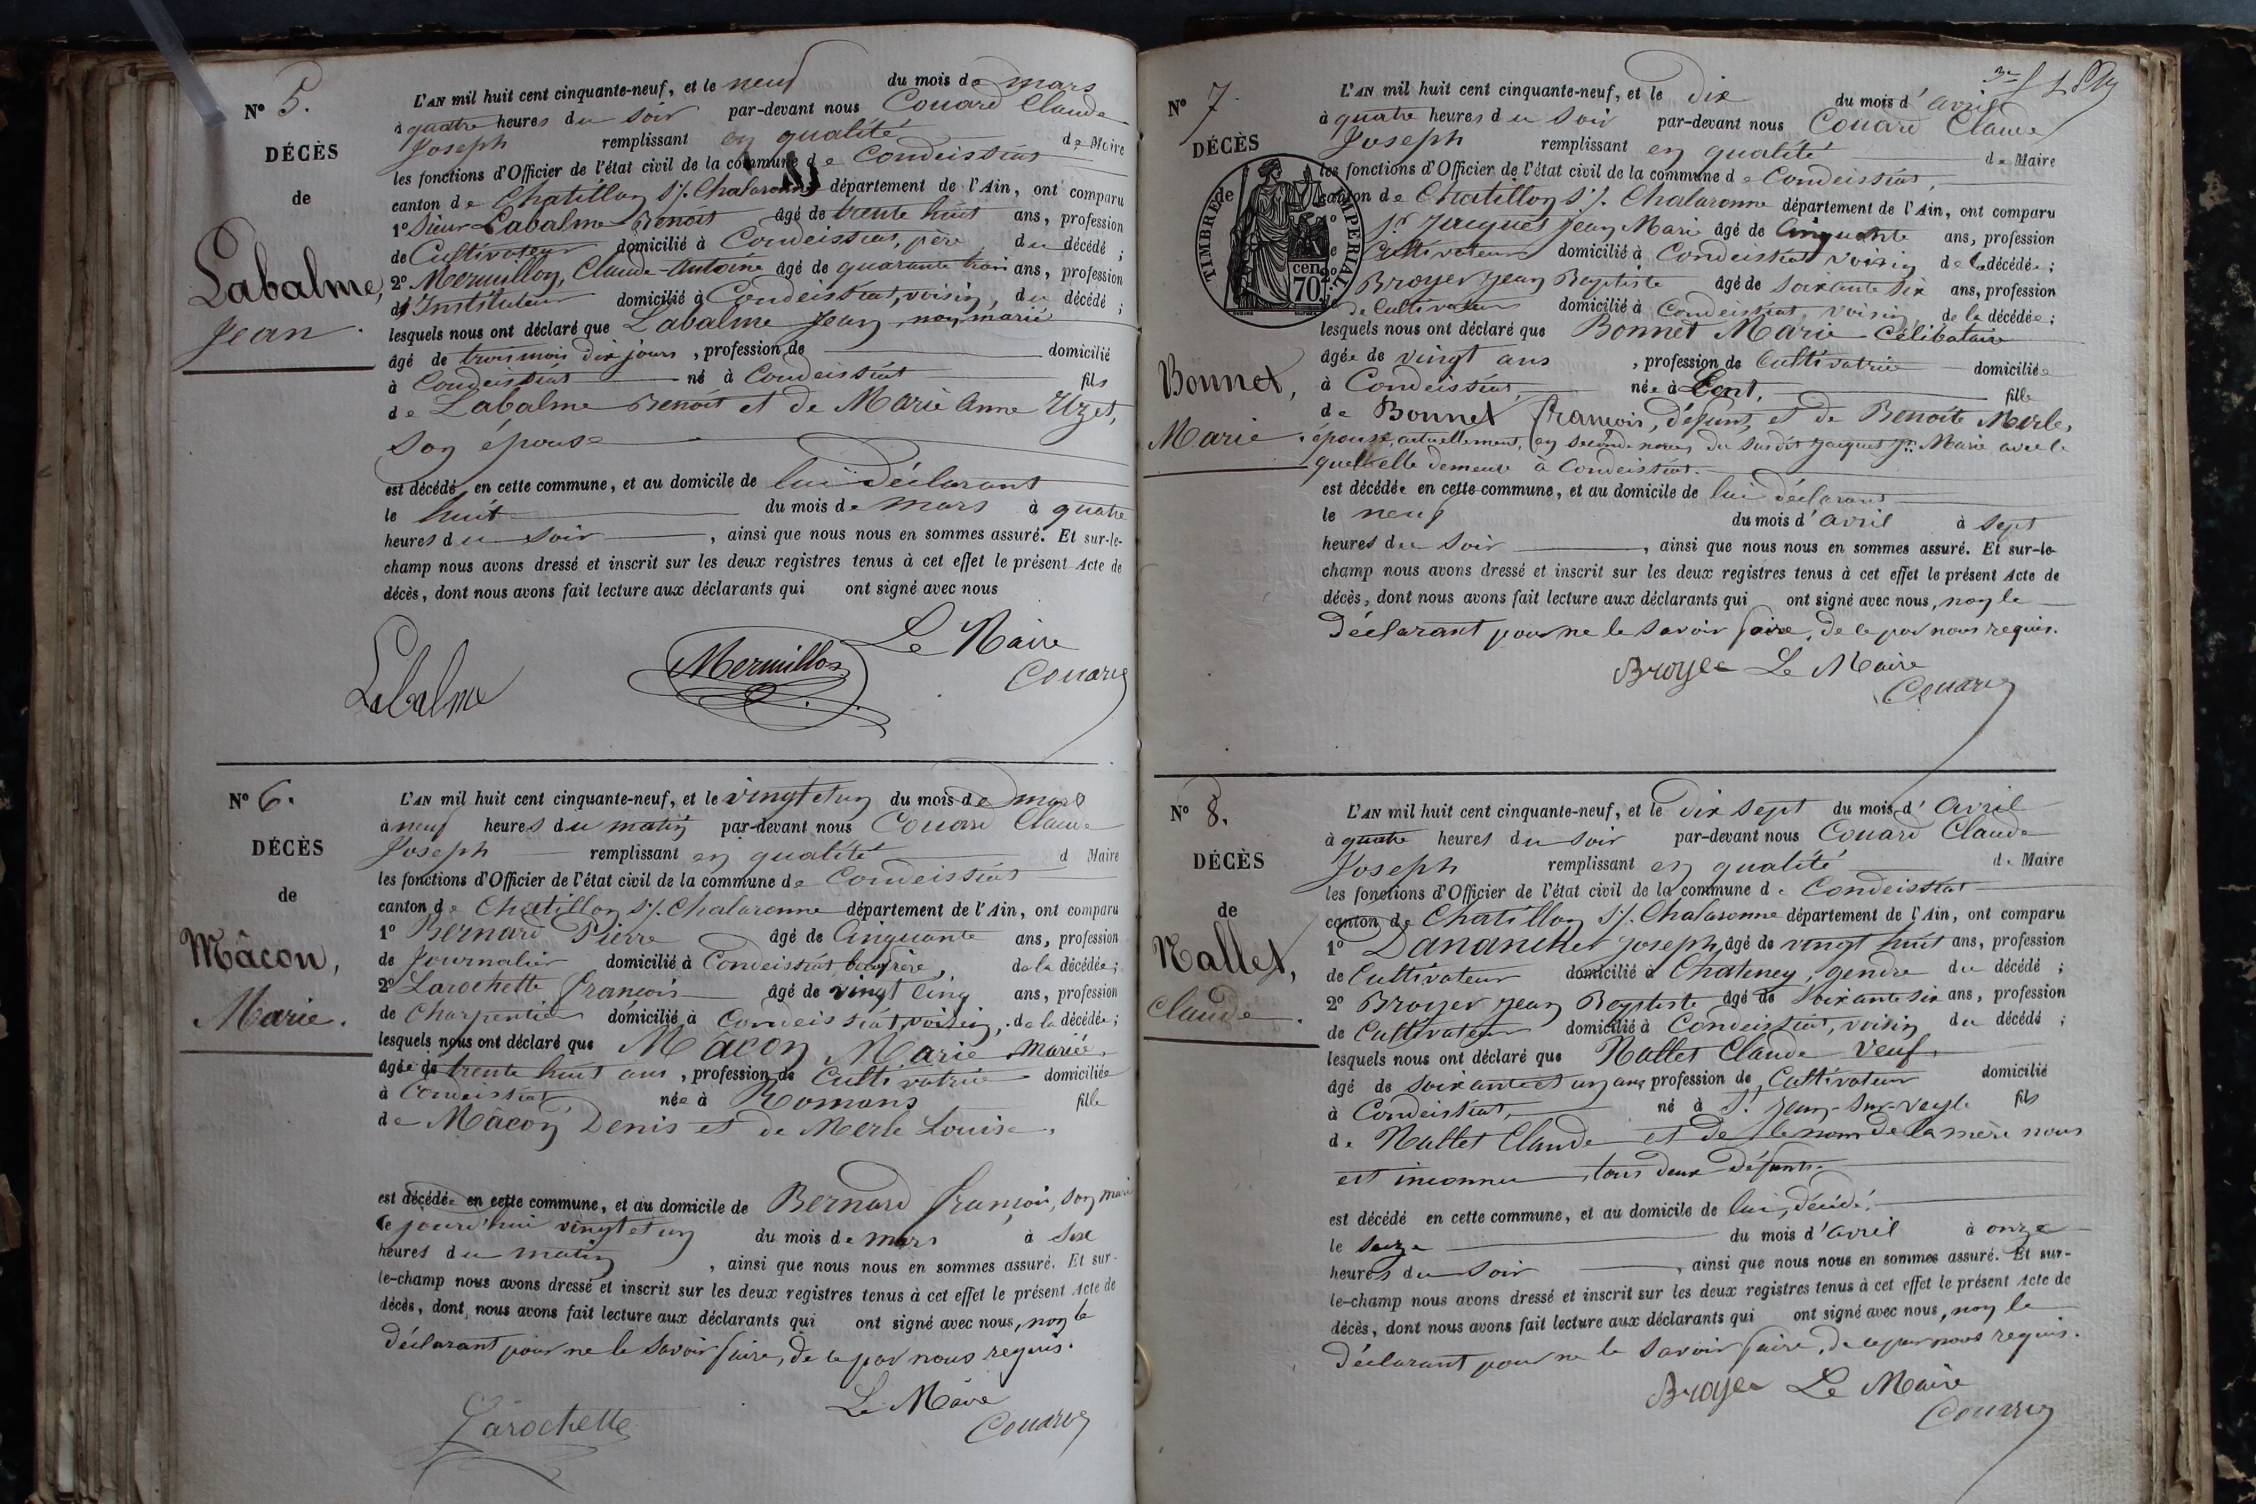 N° 5.
DÉCÈS
de
Labalme,
Jean.
L'AN mil huit cent cinquante-neuf, et le neuf du mois de mars
à quatre heures du soir par-devant nous Couard Claude
Joseph remplissant en qualité de Maire
les fonctions d'Officier de l'état civil de la commune de Condeissiat
canton de Chatillon s/. Chalaronne département de l'Ain, ont comparu
1° Sieur Labalme Benoit âgé de trente huit ans, profession
de Cultivateur domicilié à Condeissiat, père du décédé ;
2° Mermillon, Claude-Antoine âgé de quarante trois ans, profession
d'Instituteur domicilié à Condeissiat, voisin, du décédé ;
lesquels nous ont déclaré que Labalme Jean, non marié
âgé de trois mois dix jours, profession de domicilié
à Condeissiat né à Condeissiat fils
de Labalme Benoit et de Marie Anne Uzet,
son épouse
est décédé en cette commune, et au domicile de lui déclarant
le huit du mois de mars à quatre
heures du soir, ainsi que nous nous en sommes assuré. Et sur-le-
champ nous avons dressé et inscrit sur les deux registres tenus à cet effet le présent Acte de
décès, dont nous avons fait lecture aux déclarants qui ont signé avec nous
Le Maire
Labalme Mermillon Couard
N° 6.
DÉCÈS
de
Mâcon,
Marie.
L'AN mil huit cent cinquante-neuf, et le vingt et un du mois de mars
à neuf heures du matin par-devant nous Couard Claude
Joseph remplissant en qualité d Maire
les fonctions d'Officier de l'état civil de la commune de Condeissiat
canton de Chatillon s/. Chalaronne département de l'Ain, ont comparu
1° Bernard Pierre âgé de Cinquante ans, profession
de Journalier domicilié à Condeissiat, beaufrère, de la décédée ;
2° Larochette françois âgé de vingt cinq ans, profession
de Charpentier domicilié à Condeissiat, voisin, de la décédée ;
lesquels nous ont déclaré que Mâcon Marie mariée,
âgée de trente huit ans, profession de Cultivatrice domiciliée
à Condeissiat née à Romans fille
de Mâcon Denis et de Merle Louise,
est décédée en cette commune, et au domicile de Bernard françois, son mari
ce jourd'hui vingt et un du mois de mars à six
heures du matin, ainsi que nous nous en sommes assuré. Et sur-
le-champ nous avons dressé et inscrit sur les deux registres tenus à cet effet le présent Acte de
décès, dont nous avons fait lecture aux déclarants qui ont signé avec nous, non le
déclarant pour ne le savoir faire, de ce par nous requis.
Le Maire
Larochette Couard
N° 7
DÉCÈS
TIMBRE IMPERIAL
70 cen
Bonnet,
Marie.
L'AN mil huit cent cinquante-neuf, et le dix du mois d'avril
à quatre heures du soir par-devant nous Couard Claude
Joseph remplissant en qualité de Maire
les fonctions d'Officier de l'état civil de la commune de Condeissiat,
canton de Chatillon s/. Chalaronne département de l'Ain, ont comparu
1° Sr. Jacquet Jean Marie âgé de Cinquante ans, profession
de Cultivateur domicilié à Condeissiat voisin de la décédée ;
2° Broyer Jean Baptiste âgé de soixante six ans, profession
de Cultivateur domicilié à Condeissiat, voisin de la décédée ;
lesquels nous ont déclaré que Bonnet Marie Célibataire
âgée de vingt ans, profession de Cultivatrice domiciliée
à Condeissiat, née à Lent, fille
de Bonnet françois, défunt, et de Benoite Merle,
épouse, actuellement, en seconde noces, du susdit Jacquet Jn. Marie avec le
quel elle demeure à Condeissiat.
est décédée en cette commune, et au domicile de lui déclarant
le neuf du mois d'avril à sept
heures du soir, ainsi que nous nous en sommes assuré. Et sur-le-
champ nous avons dressé et inscrit sur les deux registres tenus à cet effet le présent Acte de
décès, dont nous avons fait lecture aux déclarants qui ont signé avec nous, non le
déclarant pour ne le savoir faire, de ce par nous requis.
Broyer Le Maire
Couard
N° 8.
DÉCÈS
de
Nallet,
Claude.
L'AN mil huit cent cinquante-neuf, et le dix sept du mois d'avril
à quatre heures du soir par-devant nous Couard Claude
Joseph remplissant en qualité de Maire
les fonctions d'Officier de l'état civil de la commune de Condeissiat
canton de Chatillon s/. Chalaronne département de l'Ain, ont comparu
1° Danancher Joseph, âgé de vingt huit ans, profession
de Cultivateur domicilié à Chateney, gendre du décédé ;
2° Broyer Jean Baptiste âgé de soixante six ans, profession
de Cultivateur domicilié à Condeissiat, voisin du décédé ;
lesquels nous ont déclaré que Nallet Claude veuf,
âgé de soixante et un ans profession de Cultivateur domicilié
à Condeissiat, né à St. Jean-sur-veyle fils
de Nallet Claude et de le nom de la mère nous
est inconnu, tous deux défunts.
est décédé en cette commune, et au domicile de lui, décédé.
le seize du mois d'avril à onze
heures du soir, ainsi que nous nous en sommes assuré. Et sur-
le-champ nous avons dressé et inscrit sur les deux registres tenus à cet effet le présent Acte de
décès, dont nous avons fait lecture aux déclarants qui ont signé avec nous, non le
déclarant pour ne le savoir faire, de ce par nous requis.
Broyer Le Maire
Couard